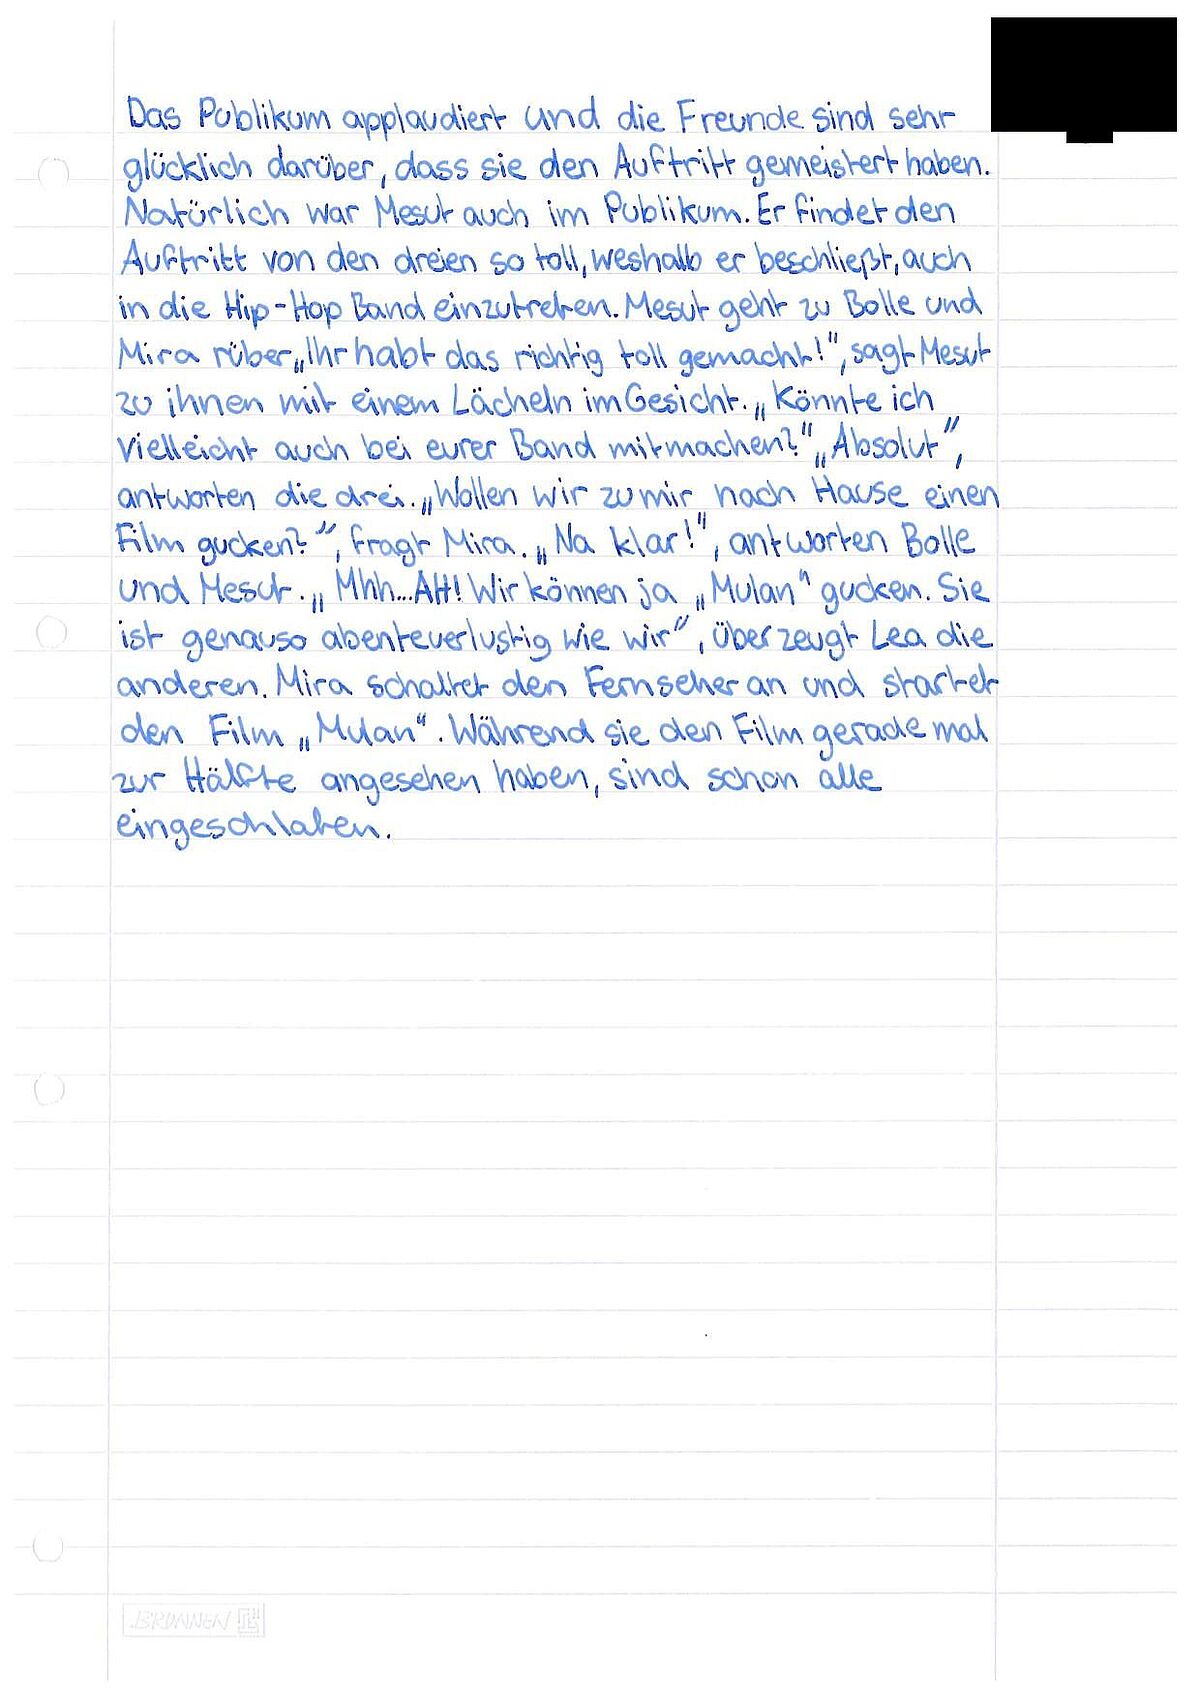 Das Publikum applaudiert und die Freunde sind sehr
glücklich darüber, dass sie den Auftritt gemeistert haben.
Natürlich war Mesut auch im Publikum. Er findet den
Auftritt von den dreien so toll, weshalb er beschließt, auch
in die Hip-Hop Band einzutreten. Mesut geht zu Bolle und
Mira rüber „Ihr habt das richtig toll gemacht!", sagt Mesut
zu ihnen mit einem Lächeln im Gesicht. „Könnte ich
vielleicht auch bei eurer Band mitmachen?" „Absolut",
antworten die drei. „Wollen wir zu mir nach Hause einen
Film gucken?", fragt Mira. „Na klar!", antworten Bolle
und Mesut. „Mhh...AH! Wir können ja „Mulan" gucken. Sie
ist genauso abenteuerlustig wie wir", überzeugt Lea die
anderen. Mira schaltet den Fernseher an und startet
den Film „Mulan". Während sie den Film gerade mal
zur Hälfte angesehen haben, sind schon alle
eingeschlafen.
BRUNNEN